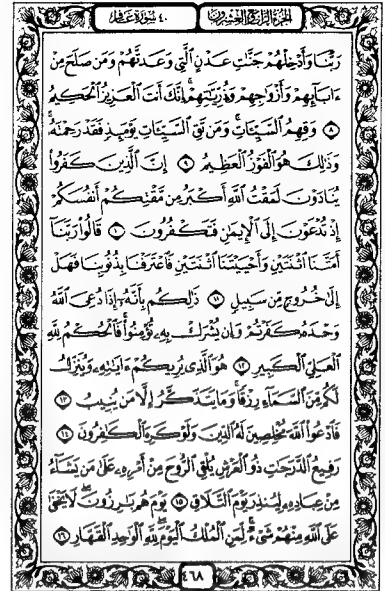 الجزء الرابع والعشرون ٤٠ سورة غافر
رَبَّنَا وَأَدْخِلْهُمْ جَنَّٰتِ عَدْنٍ ٱلَّتِى وَعَدتَّهُمْ وَمَن صَلَحَ مِنْ
ءَابَآئِهِمْ وَأَزْوَٰجِهِمْ وَذُرِّيَّٰتِهِمْ ۚ إِنَّكَ أَنتَ ٱلْعَزِيزُ ٱلْحَكِيمُ
٨ وَقِهِمُ ٱلسَّيِّـَٔاتِ ۚ وَمَن تَقِ ٱلسَّيِّـَٔاتِ يَوْمَئِذٍ فَقَدْ رَحِمْتَهُۥ ۚ
وَذَٰلِكَ هُوَ ٱلْفَوْزُ ٱلْعَظِيمُ ٩ إِنَّ ٱلَّذِينَ كَفَرُوا۟
يُنَادَوْنَ لَمَقْتُ ٱللَّهِ أَكْبَرُ مِن مَّقْتِكُمْ أَنفُسَكُمْ
إِذْ تُدْعَوْنَ إِلَى ٱلْإِيمَٰنِ فَتَكْفُرُونَ ١٠ قَالُوا۟ رَبَّنَآ
أَمَتَّنَا ٱثْنَتَيْنِ وَأَحْيَيْتَنَا ٱثْنَتَيْنِ فَٱعْتَرَفْنَا بِذُنُوبِنَا فَهَلْ
إِلَىٰ خُرُوجٍ مِّن سَبِيلٍ ١١ ذَٰلِكُم بِأَنَّهُۥٓ إِذَا دُعِىَ ٱللَّهُ
وَحْدَهُۥ كَفَرْتُمْ ۖ وَإِن يُشْرَكْ بِهِۦ تُؤْمِنُوا۟ ۚ فَٱلْحُكْمُ لِلَّهِ
ٱلْعَلِىِّ ٱلْكَبِيرِ ١٢ هُوَ ٱلَّذِى يُرِيكُمْ ءَايَٰتِهِۦ وَيُنَزِّلُ
لَكُم مِّنَ ٱلسَّمَآءِ رِزْقًا ۚ وَمَا يَتَذَكَّرُ إِلَّا مَن يُنِيبُ ١٣
فَٱدْعُوا۟ ٱللَّهَ مُخْلِصِينَ لَهُ ٱلدِّينَ وَلَوْ كَرِهَ ٱلْكَٰفِرُونَ ١٤
رَفِيعُ ٱلدَّرَجَٰتِ ذُو ٱلْعَرْشِ يُلْقِى ٱلرُّوحَ مِنْ أَمْرِهِۦ عَلَىٰ مَن يَشَآءُ
مِنْ عِبَادِهِۦ لِيُنذِرَ يَوْمَ ٱلتَّلَاقِ ١٥ يَوْمَ هُم بَٰرِزُونَ ۖ لَا يَخْفَىٰ
عَلَى ٱللَّهِ مِنْهُمْ شَىْءٌ ۚ لِّمَنِ ٱلْمُلْكُ ٱلْيَوْمَ ۖ لِلَّهِ ٱلْوَٰحِدِ ٱلْقَهَّارِ ١٦
٤٦٨